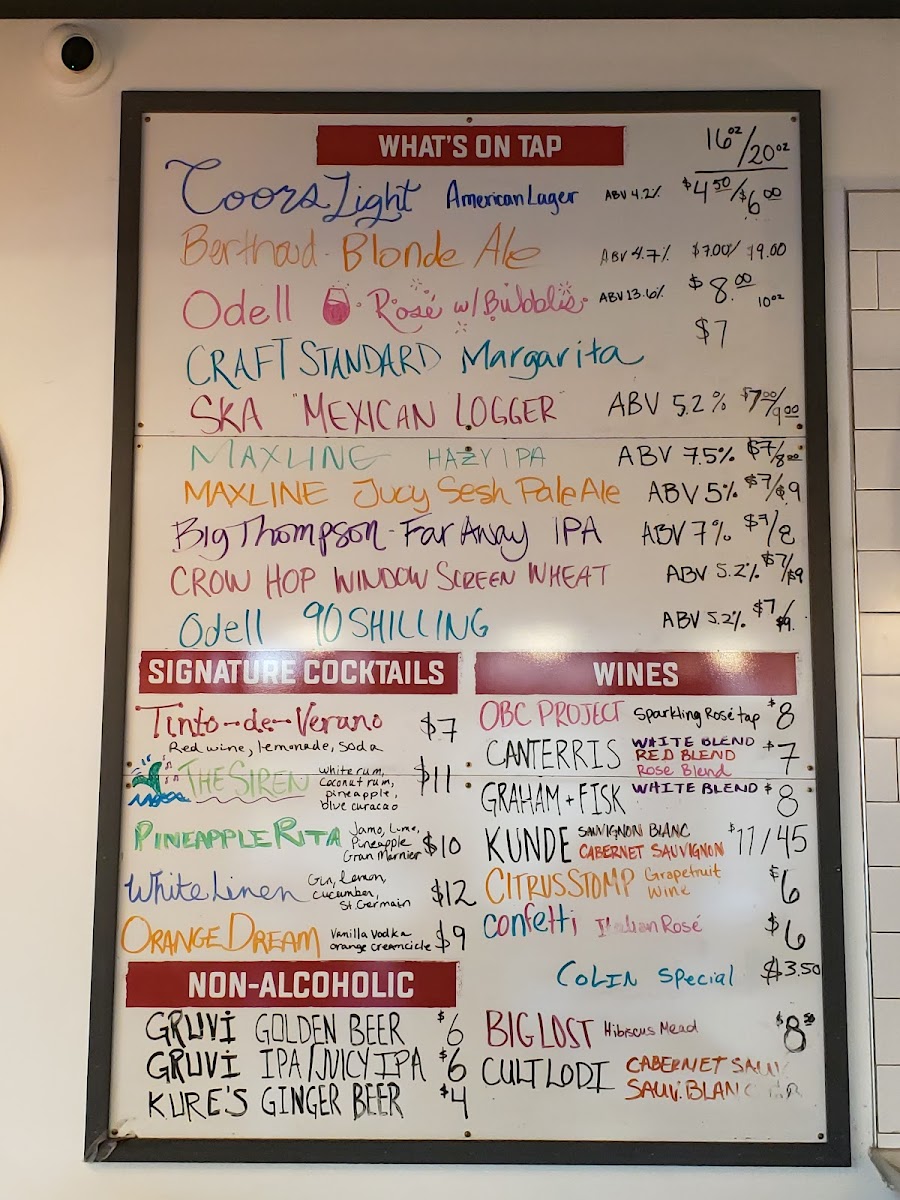 WHAT'S ON TAP
16oz/20oz
Coors Light American Lager ABV 4.2% $4 50/$6 00
Berthoud - Blonde Ale ABV 4.7% $7.00/ 19.00
Odell Rosé w/Bubbles ABV 13.6% $8.00 10oz
CRAFT STANDARD Margarita $7
SKA "MEXICAN LOGGER" ABV 5.2% $7 00/9 00
MAXLINE HAZY IPA ABV 7.5% $7/8.00
MAXLINE Jucy Sesh Pale Ale ABV 5% $7/$9
Big Thompson - Far Away IPA ABV 7% $7/8
CROW HOP WINDOW SCREEN WHEAT ABV 5.2% $7/$9
Odell 90 SHILLING ABV 5.2% $7/$9.
SIGNATURE COCKTAILS
Tinto-de-Verano $7
Red wine, lemonade, soda
THE SIREN $11
white rum,
coconut rum,
pineapple,
blue curacao
PINEAPPLE RITA $10
Jamo, Lime,
Pineapple
Gran Marnier
White Linen $12
Gin, Lemon,
cucumber,
St. Germain
ORANGE DREAM $9
Vanilla Vodka
orange creamcicle
NON-ALCOHOLIC
GRUVI GOLDEN BEER $6
GRUVI IPA/JUICY IPA $6
KURE'S GINGER BEER $4
WINES
OBC PROJECT Sparkling Rosé tap $8
CANTERRIS WHITE BLEND $7
RED BLEND
Rose Blend
GRAHAM + FISK WHITE BLEND $8
KUNDE SAUVIGNON BLANC $11/45
CABERNET SAUVIGNON
CITRUS STOMP Grapefruit $6
Wine
Confetti Italian Rosé $6
COLIN Special $3.50
BIG LOST Hibiscus Mead $8 50
CULT LODI CABERNET SAUV
SAUV. BLANC